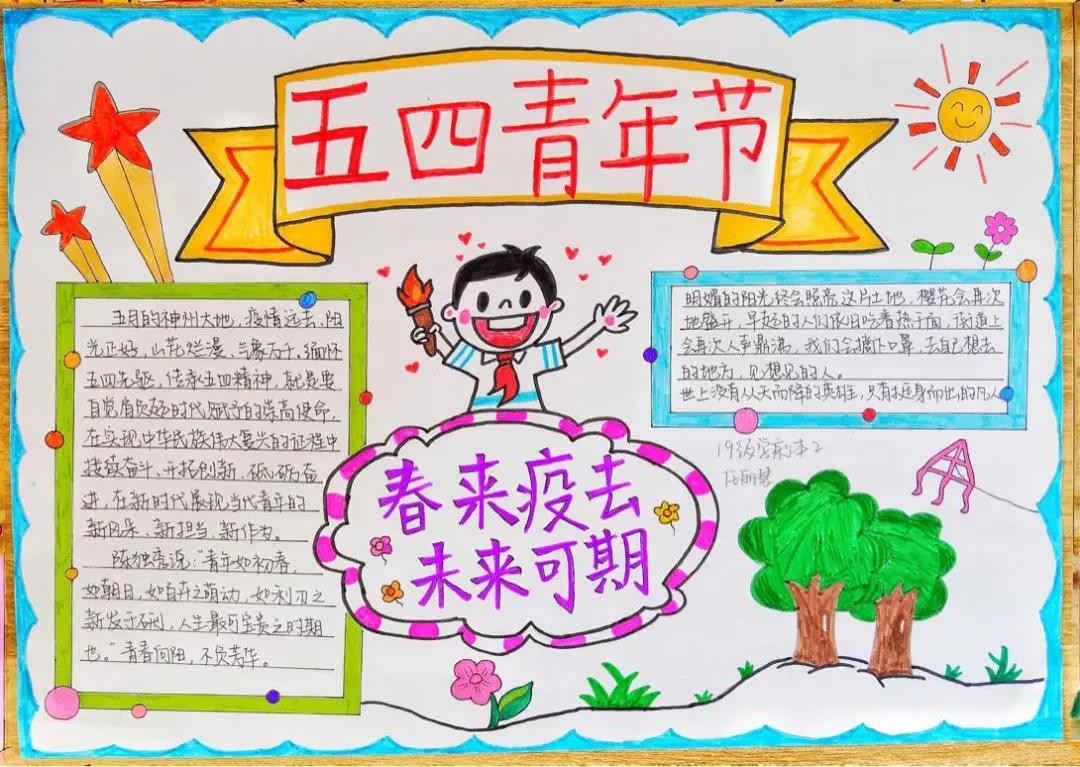 五四青年节
五月的神州大地，疫情远去、阳
光正好，山花烂漫、气象万千，缅怀
五四先驱，传承五四精神，就是要
自觉肩负起时代赋予的崇高使命，
在实现中华民族伟大复兴的征程中
接续奋斗、开拓创新、砥砺奋
进，在新时代展现当代青年的
新风采、新担当、新作为。
陈独秀说："青年如初春，
如朝日，如百卉之萌动，如利刃之
新发于硎，人生最可宝贵之时期
也。"青春向阳，不负芳华。
明媚的阳光终会照亮这片土地，樱花会再次
地盛开，早起的人们依旧吃着热干面，街道上
会再次人声鼎沸，我们会摘下口罩，去自己想去
的地方，见想见的人。
世上没有从天而降的英雄，只有挺身而出的凡人
19级学前本2
春来疫去
未来可期